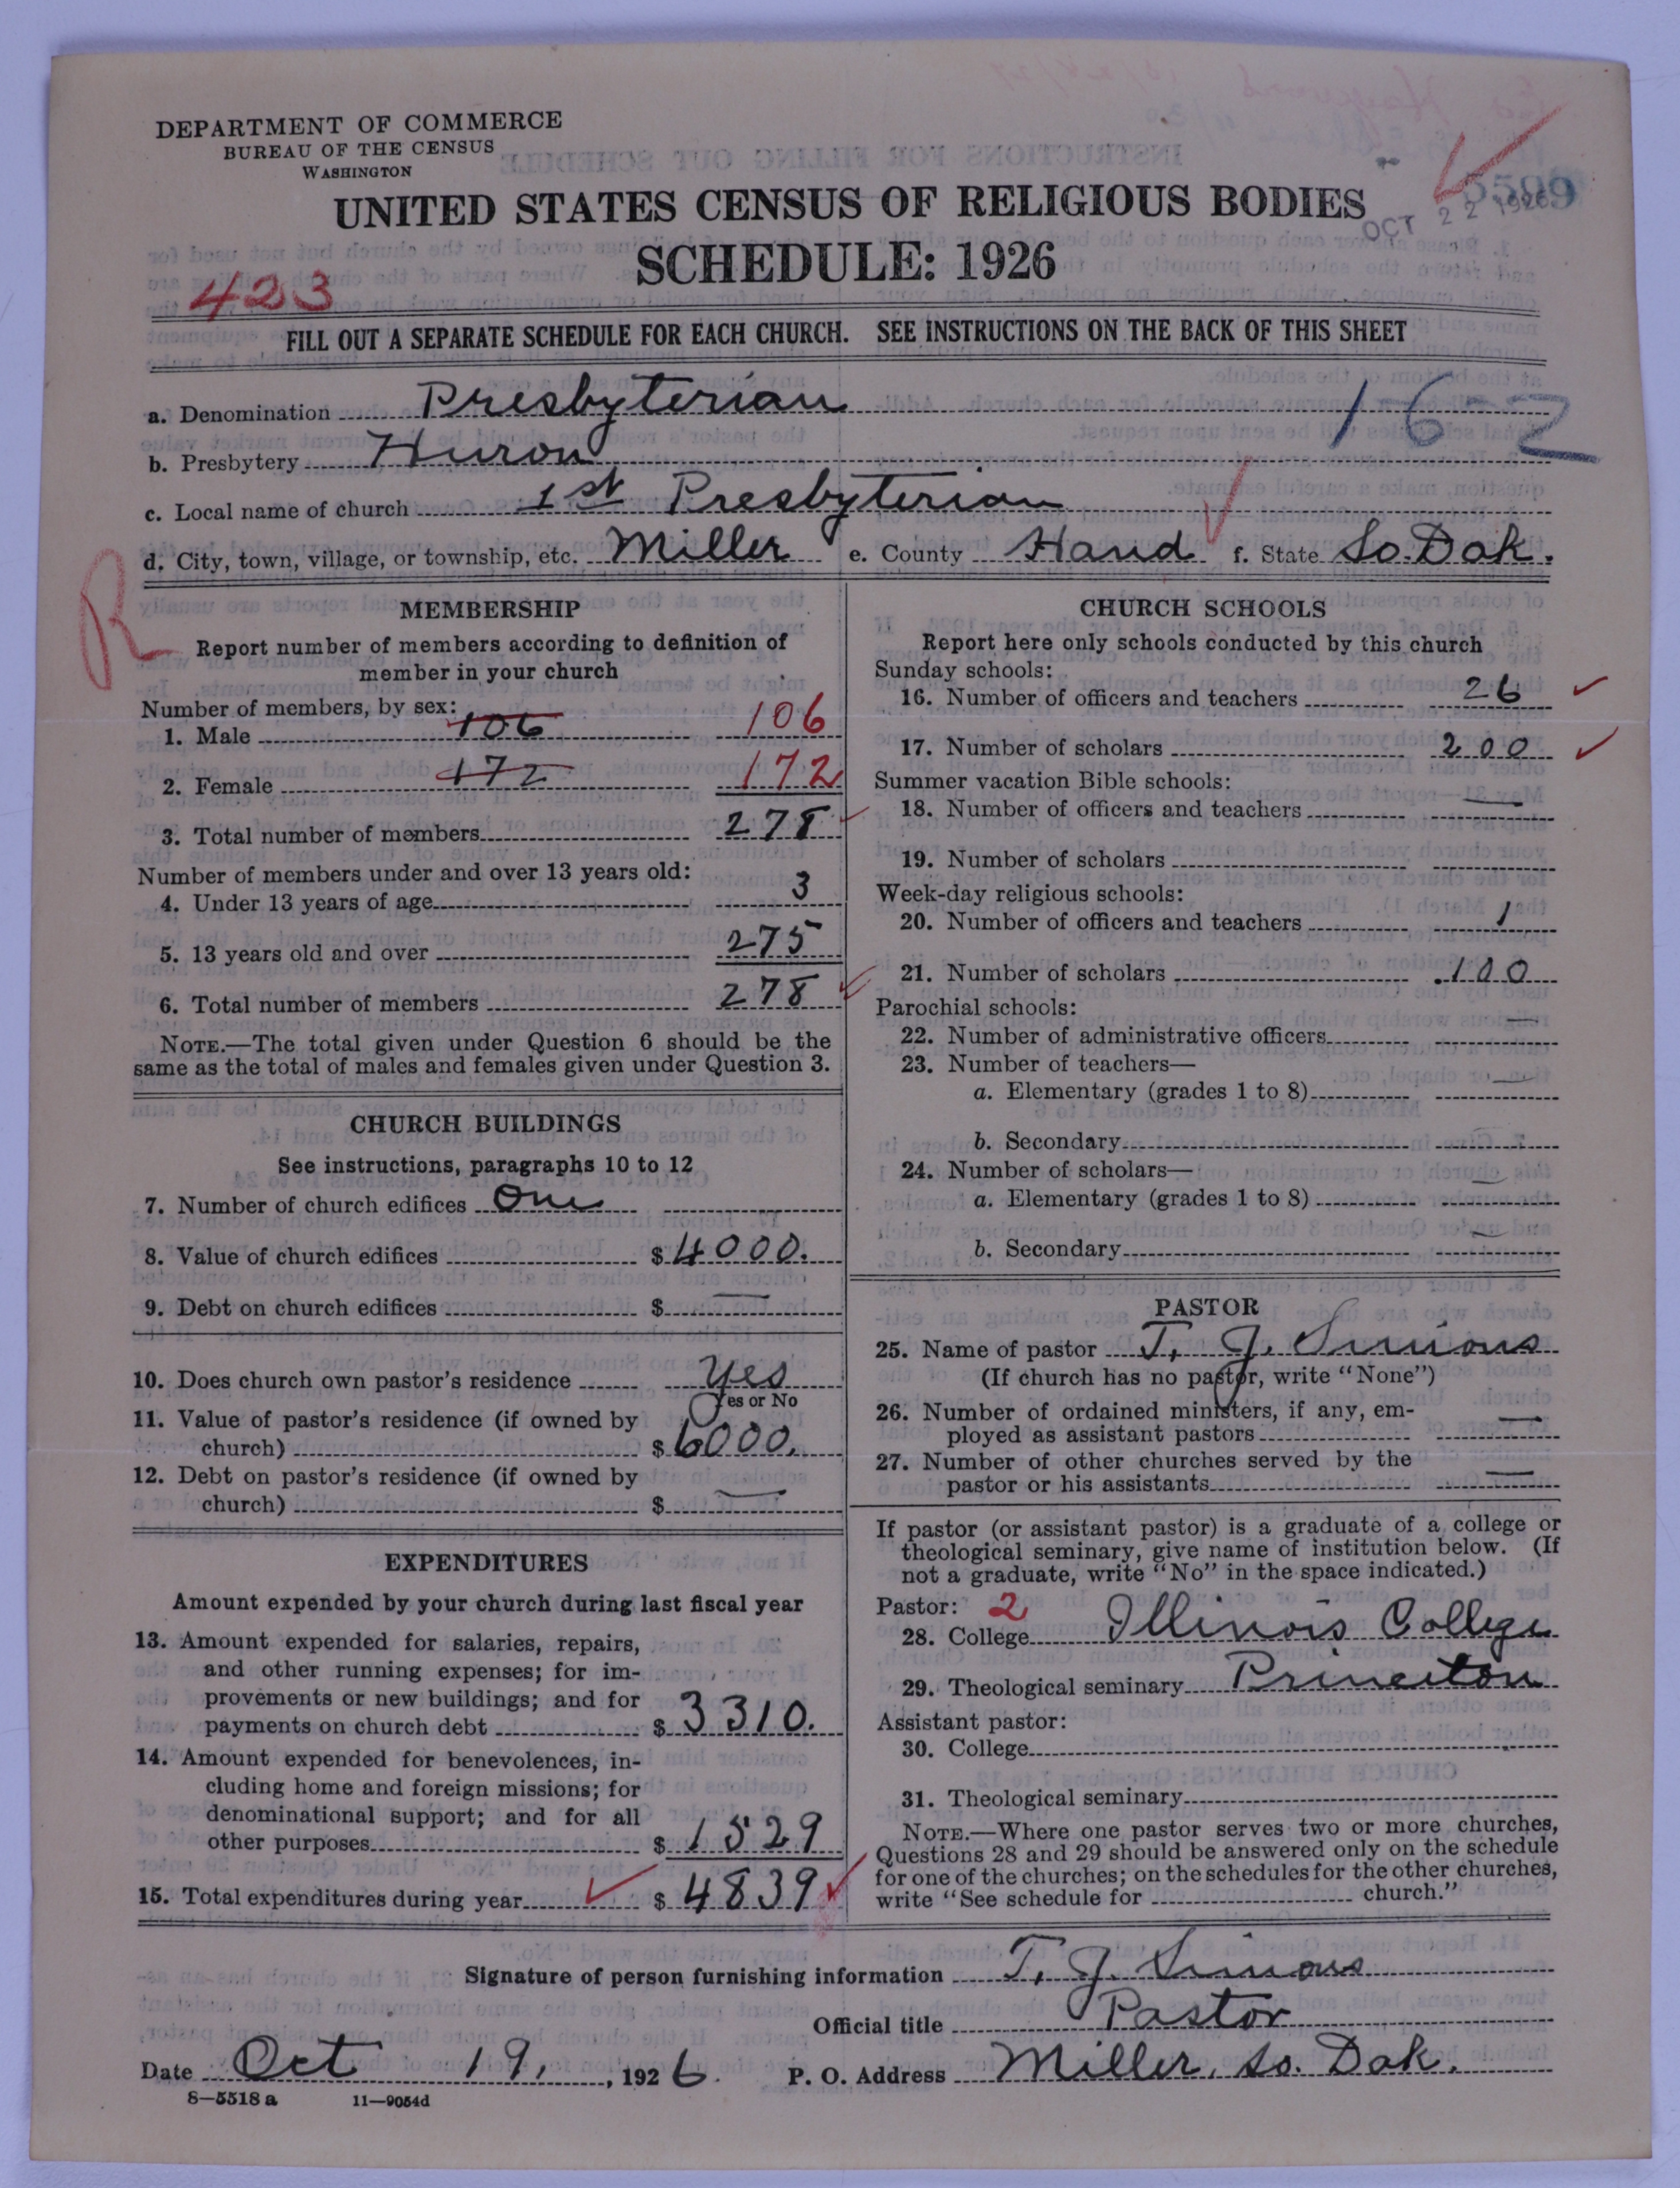 DEPARTMENT OF COMMERCE
BUREAU OF THE CENSUS
WASHINGTON
UNITED STATES CENSUS OF RELIGIOUS BODIES
5599
OCT 22 1926
SCHEDULE: 1926
423
FILL OUT A SEPARATE SCHEDULE FOR EACH CHURCH. SEE INSTRUCTIONS ON THE BACK OF THIS SHEET
a. Denomination Presbyterian 16-2
b. Presbytery Huron
c. Local name of church 1st Presbyterian
d. City, town, village, or township, etc. Miller e. County Hand f. State So. Dak.
R
MEMBERSHIP
Report number of members according to definition of
member in your church
Number of members, by sex:
1. Male 106 106
2. Female 172 172
3. Total number of members 278
Number of members under and over 13 years old:
4. Under 13 years of age 3
5. 13 years old and over 275
6. Total number of members 278
NOTE.—The total given under Question 6 should be the
same as the total of males and females given under Question 3.
CHURCH BUILDINGS
See instructions, paragraphs 10 to 12
7. Number of church edifices One
8. Value of church edifices $ 4000.
9. Debt on church edifices $ —
10. Does church own pastor's residence Yes
Yes or No
11. Value of pastor's residence (if owned by
church) $ 6000.
12. Debt on pastor's residence (if owned by
church) $ —
EXPENDITURES
Amount expended by your church during last fiscal year
13. Amount expended for salaries, repairs,
and other running expenses; for im-
provements or new buildings; and for
payments on church debt $ 3310.
14. Amount expended for benevolences, in-
cluding home and foreign missions; for
denominational support; and for all
other purposes $ 1529
15. Total expenditures during year $ 4839
CHURCH SCHOOLS
Report here only schools conducted by this church
Sunday schools:
16. Number of officers and teachers 26
17. Number of scholars 200
Summer vacation Bible schools:
18. Number of officers and teachers —
19. Number of scholars
Week-day religious schools:
20. Number of officers and teachers 1
21. Number of scholars 100
Parochial schools:
22. Number of administrative officers —
23. Number of teachers—
a. Elementary (grades 1 to 8) —
b. Secondary —
24. Number of scholars—
a. Elementary (grades 1 to 8) —
b. Secondary —
PASTOR
25. Name of pastor T. J. Simons
(If church has no pastor, write "None")
26. Number of ordained ministers, if any, em-
ployed as assistant pastors —
27. Number of other churches served by the
pastor or his assistants —
If pastor (or assistant pastor) is a graduate of a college or
theological seminary, give name of institution below. (If
not a graduate, write "No" in the space indicated.)
Pastor: 2
28. College Illinois College
29. Theological seminary Princeton
Assistant pastor:
30. College
31. Theological seminary
NOTE.—Where one pastor serves two or more churches,
Questions 28 and 29 should be answered only on the schedule
for one of the churches; on the schedules for the other churches,
write "See schedule for church."
Signature of person furnishing information T. J. Simons
Official title Pastor
Date Oct 19, 1926. P. O. Address Miller, So. Dak.
8—5518 a 11—9054d